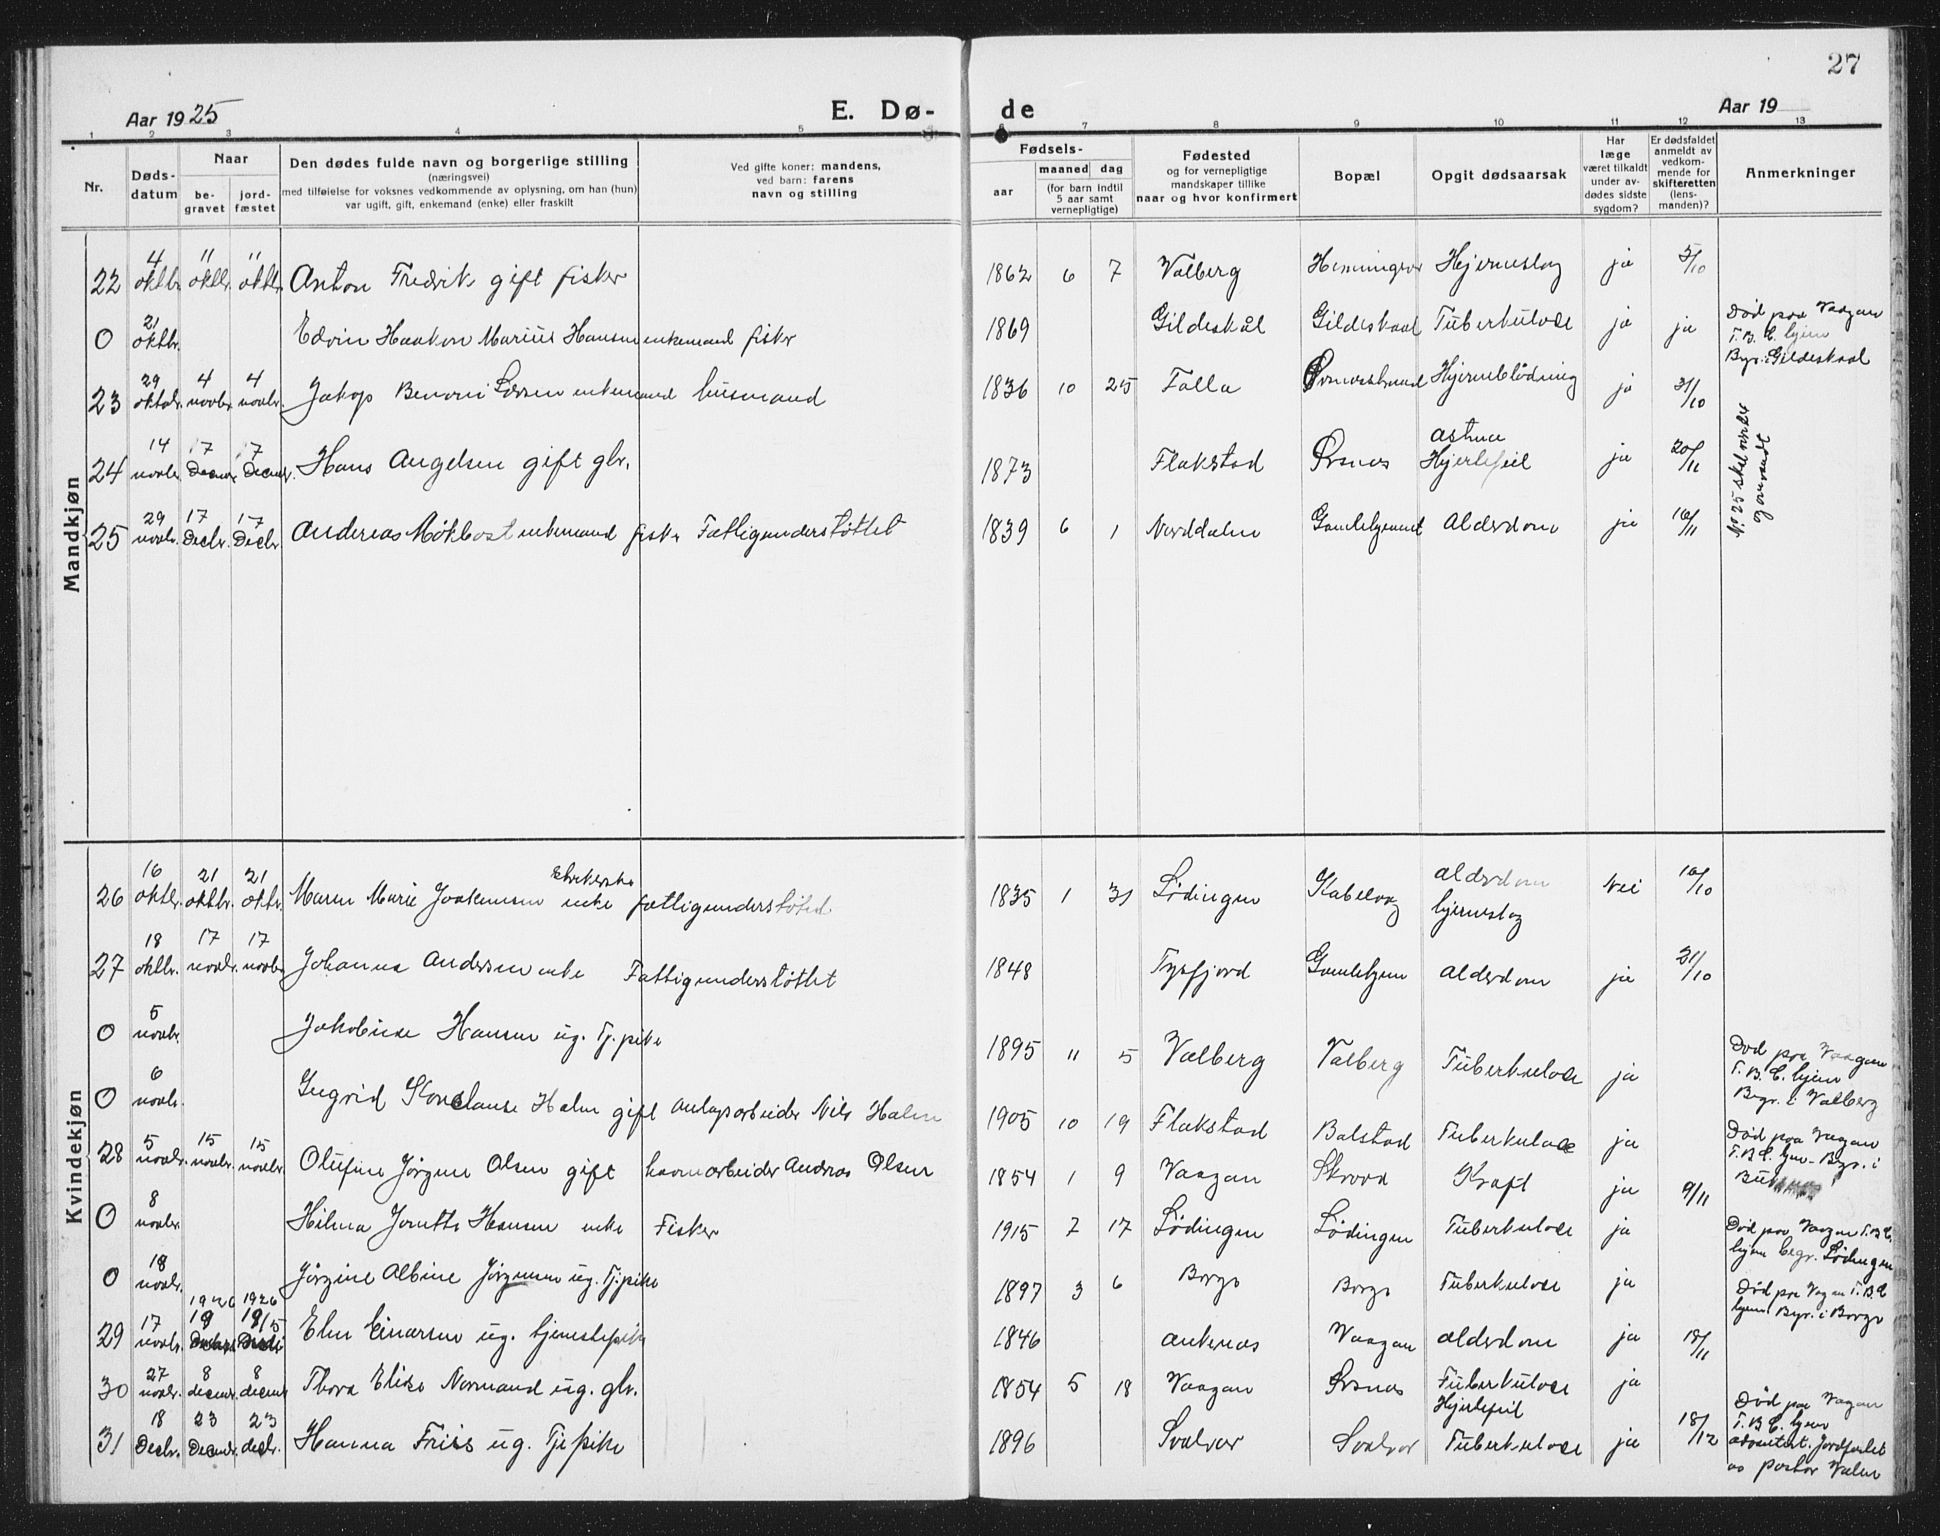 27
Aar 1925 E. Dø- de Aar 19
1 2 3 4 5 6 7 8 9 10 11 12 13
Nr. Døds-datum Naar be-gravet jord-fæstet Den dødes fulde navn og borgerlige stilling (næringsvei) med tilføielse for voksnes vedkommende av oplysning, om han (hun) var ugift, gift, enkemand (enke) eller fraskilt Ved gifte koner: mandens, ved barn: farens navn og stilling Fødsels- aar maaned dag (for barn indtil 5 aar samt vernepligtige) Fødested og for vernepligtige mandskaper tillike naar og hvor konfirmert Bopæl Opgit dødsaarsak Har læge været tilkaldt under av-dødes sidste sygdom? Er dødsfaldet anmeldt av vedkom-mende for skifteretten (lens-manden)? Anmerkninger
Mandkjøn
22 4 oktbr. 11 oktbr. 11 oktbr. Anton Fredrik gift fisker 1862 6 7 Valberg Hjerneslag ja 5/10
0 21 oktbr. Edvin Haakon Marius Hansen enkemand fisker 1869 Gildeskål Gildeskaal Tuberkulose ja ja Død paa Vaagan T.B.C. hjem Bgr. i Gildeskaal
23 29 oktbr. 4 novbr. 4 novbr. Jakop Benoni enkemand husmand 1836 10 25 Falla Hjerneblødning ja 31/10
24 14 novbr. 17 Decmr. 17 Decmr. Hans Angelsen gift gbr. 1873 Flakstad Ørsnes astma Hjertefeil ja 20/11
25 29 novbr. 17 Decbr. 17 Decbr. Andreas Møkbost enkemand fisker Fattigunderstøttet 1839 6 1 Norddalen Gamlehjemmet Alderdom ja 16/11 No. 25 skal
Kvindekjøn
26 16 oktbr. 21 oktbr. 21 oktbr. Maren Marie Joakimsen enke fattigunderstøtted 1835 1 31 Lødingen Kabelvaag alderdom hjerneslag Nei 16/10
27 18 oktbr. 17 novbr. 17 novbr. Johanna Andersen enke Fattigunderstøttet 1848 Tysfjord Gamlehjem alderdom ja 21/10
0 5 novbr. Jakobine Hansen ug. Tj.pike 1895 11 5 Valberg Valberg Tuberkulose ja Død paa Vaagan T.B.C. hjem Begr. i Valberg
0 6 novbr. Ingrid Konstanse Halm gift anlægsarbeider Nils Halm 1905 10 19 Flakstad Balstad Tuberkulose ja Død paa Vagan T.B.C. hjem - Bgr. i
28 5 novbr. 15 novbr. 15 novbr. Olufine Jørgine Olsen gift havnearbeider Andreas Olsen 1854 1 9 Vaagan Skrova Kræft ja 9/11
0 8 novbr. Hilma Hansen enke Fisker 1915 7 17 Lødingen Lødingen Tuberkulose ja Død paa Vaagan T.B.C. hjem begr. Lødingen
0 18 novbr. Jørgine Albine Jørgensen ug. Tj.pike 1897 3 6 Borge Borge Tuberkulose ja Død paa Vagan T.B.C hjem Bgr. i Borge
29 17 novbr. 1926 1926 Elen Einarsen ug. tjenestepike 1846 ankenes Vaagan alderdom ja 18/11
30 27 novbr. 8 decmr. 8 decmr. Thora Elise Normand ug. gbr. 1854 5 18 Vaagan Ørsnes Tuberkulose Hjertefeil ja
31 18 Decbr. 23 Decmr. 23 decbr. Hanna Friis ug. Tjpike 1896 Svolvær Svolvær Tuberkulose ja 18/12 Død paa Vagan T.B.C. hjem Jordfæstet av pastor